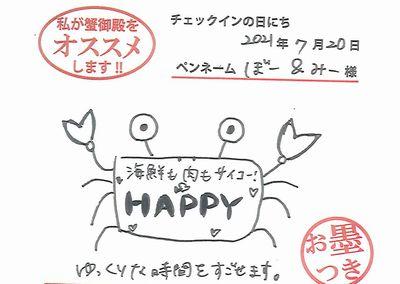 私が蟹御殿を
オススメ
します!!
チェックインの日にち
2021年7月20日
ペンネーム ぼー&みー様
海鮮も肉もサイコー!
HAPPY
ゆっくりな時間をすごせます。
お墨
つき